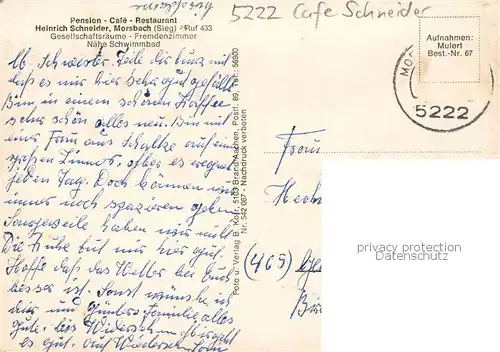 5222 Cafe Schneider
Pension - Café - Restaurant
Heinrich Schneider, Morsbach (Sieg) Ruf 433
Gesellschaftsräume - Fremdenzimmer
Nähe Schwimmbad
Aufnahmen:
Mulert
Best.-Nr. 67
5222
Lb. Schwester. Teile dir kurz mit
daß es mir hier sehr gut gefällt
Bin in einem schönen Kaffee
sehr schön alles neu. Bin mit
einer Frau aus Schalke auf einem
großen Zimmer, aber es regnet
jeden Tag. Doch können wir
immer noch spazieren gehen
Langeweile haben wir nicht
Die Ruhe tut mir hier gut.
Hoffe daß das Wetter bei Euch
besser ist. Sonst wünsche ich
dir und Günters Familie alles
gute. bis Wiedersehn
es gut. Auf Wiedersehn
Foto u. Verlag B. Kohr, 5103 Brand/Aachen, Postf. 89, Tel. 56600
Nr. 542 067 - Nachdruck verboten
Frau
(465)
privacy protection
Datenschutz